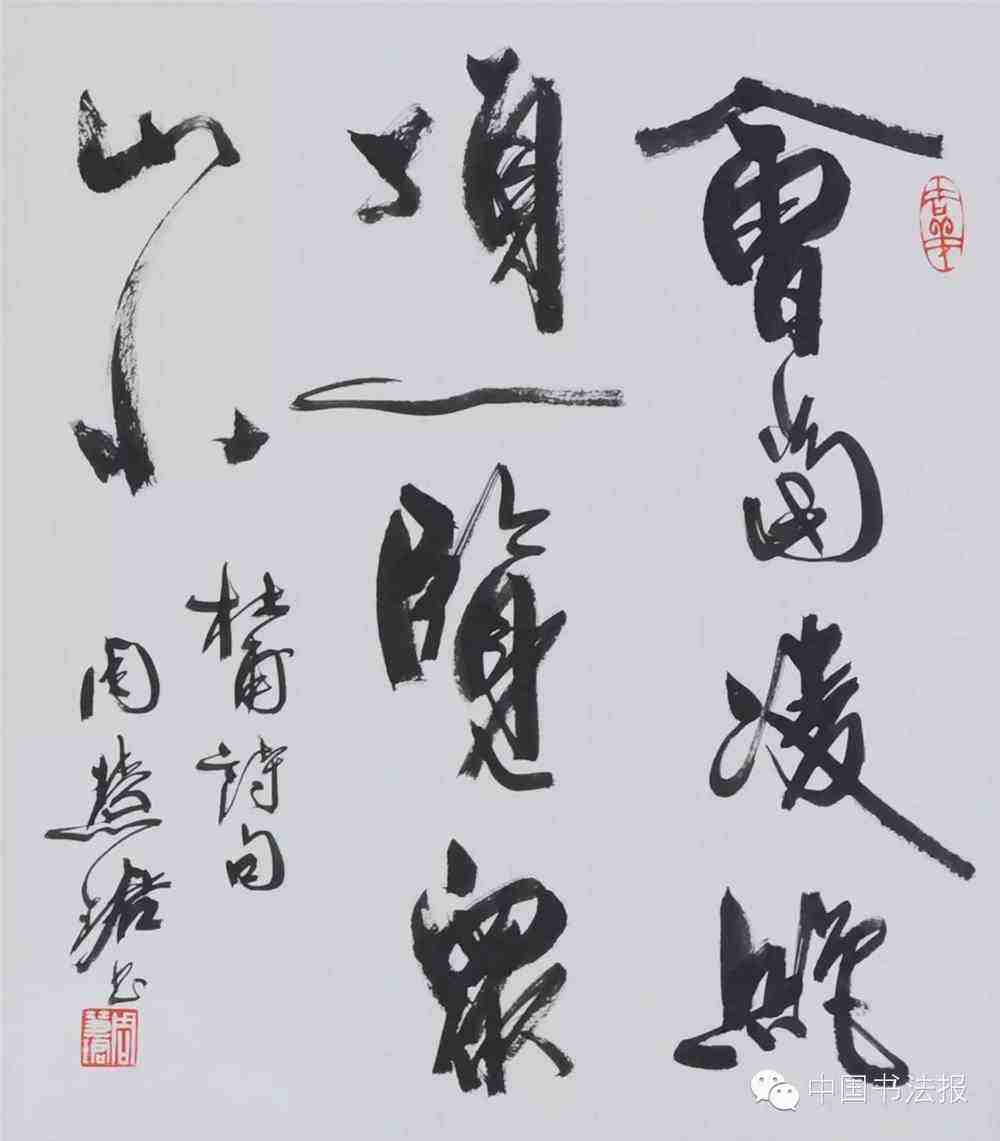 會當凌絕
頂一覽眾
山小
杜甫詩句
周慧珺书
吉羊
周慧珺
中国书法报